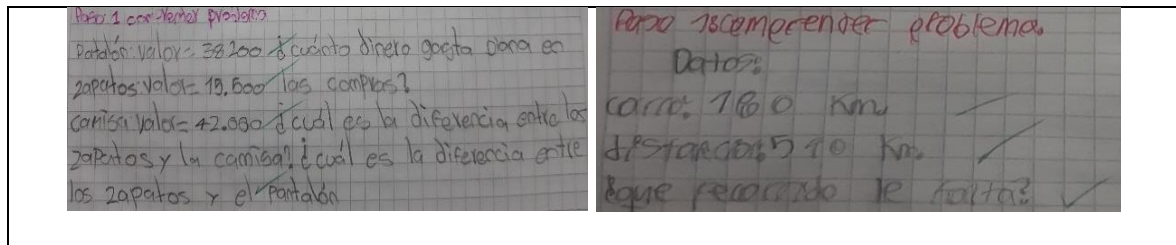 Paso 1 comprender problema
Pantalón valor= 38200 ¿cuánto dinero gasta diana en
zapatos valor= 19.500 las compras?
camisa valor= 42.000 ¿cuál es la diferencia entre los
zapatos y la camisa? ¿cuál es la diferencia entre
los zapatos y el pantalón
Paso 1: comprender problema.
Datos:
carro: 180 Km
distancia: 510 Km.
¿que recorrido le falta?